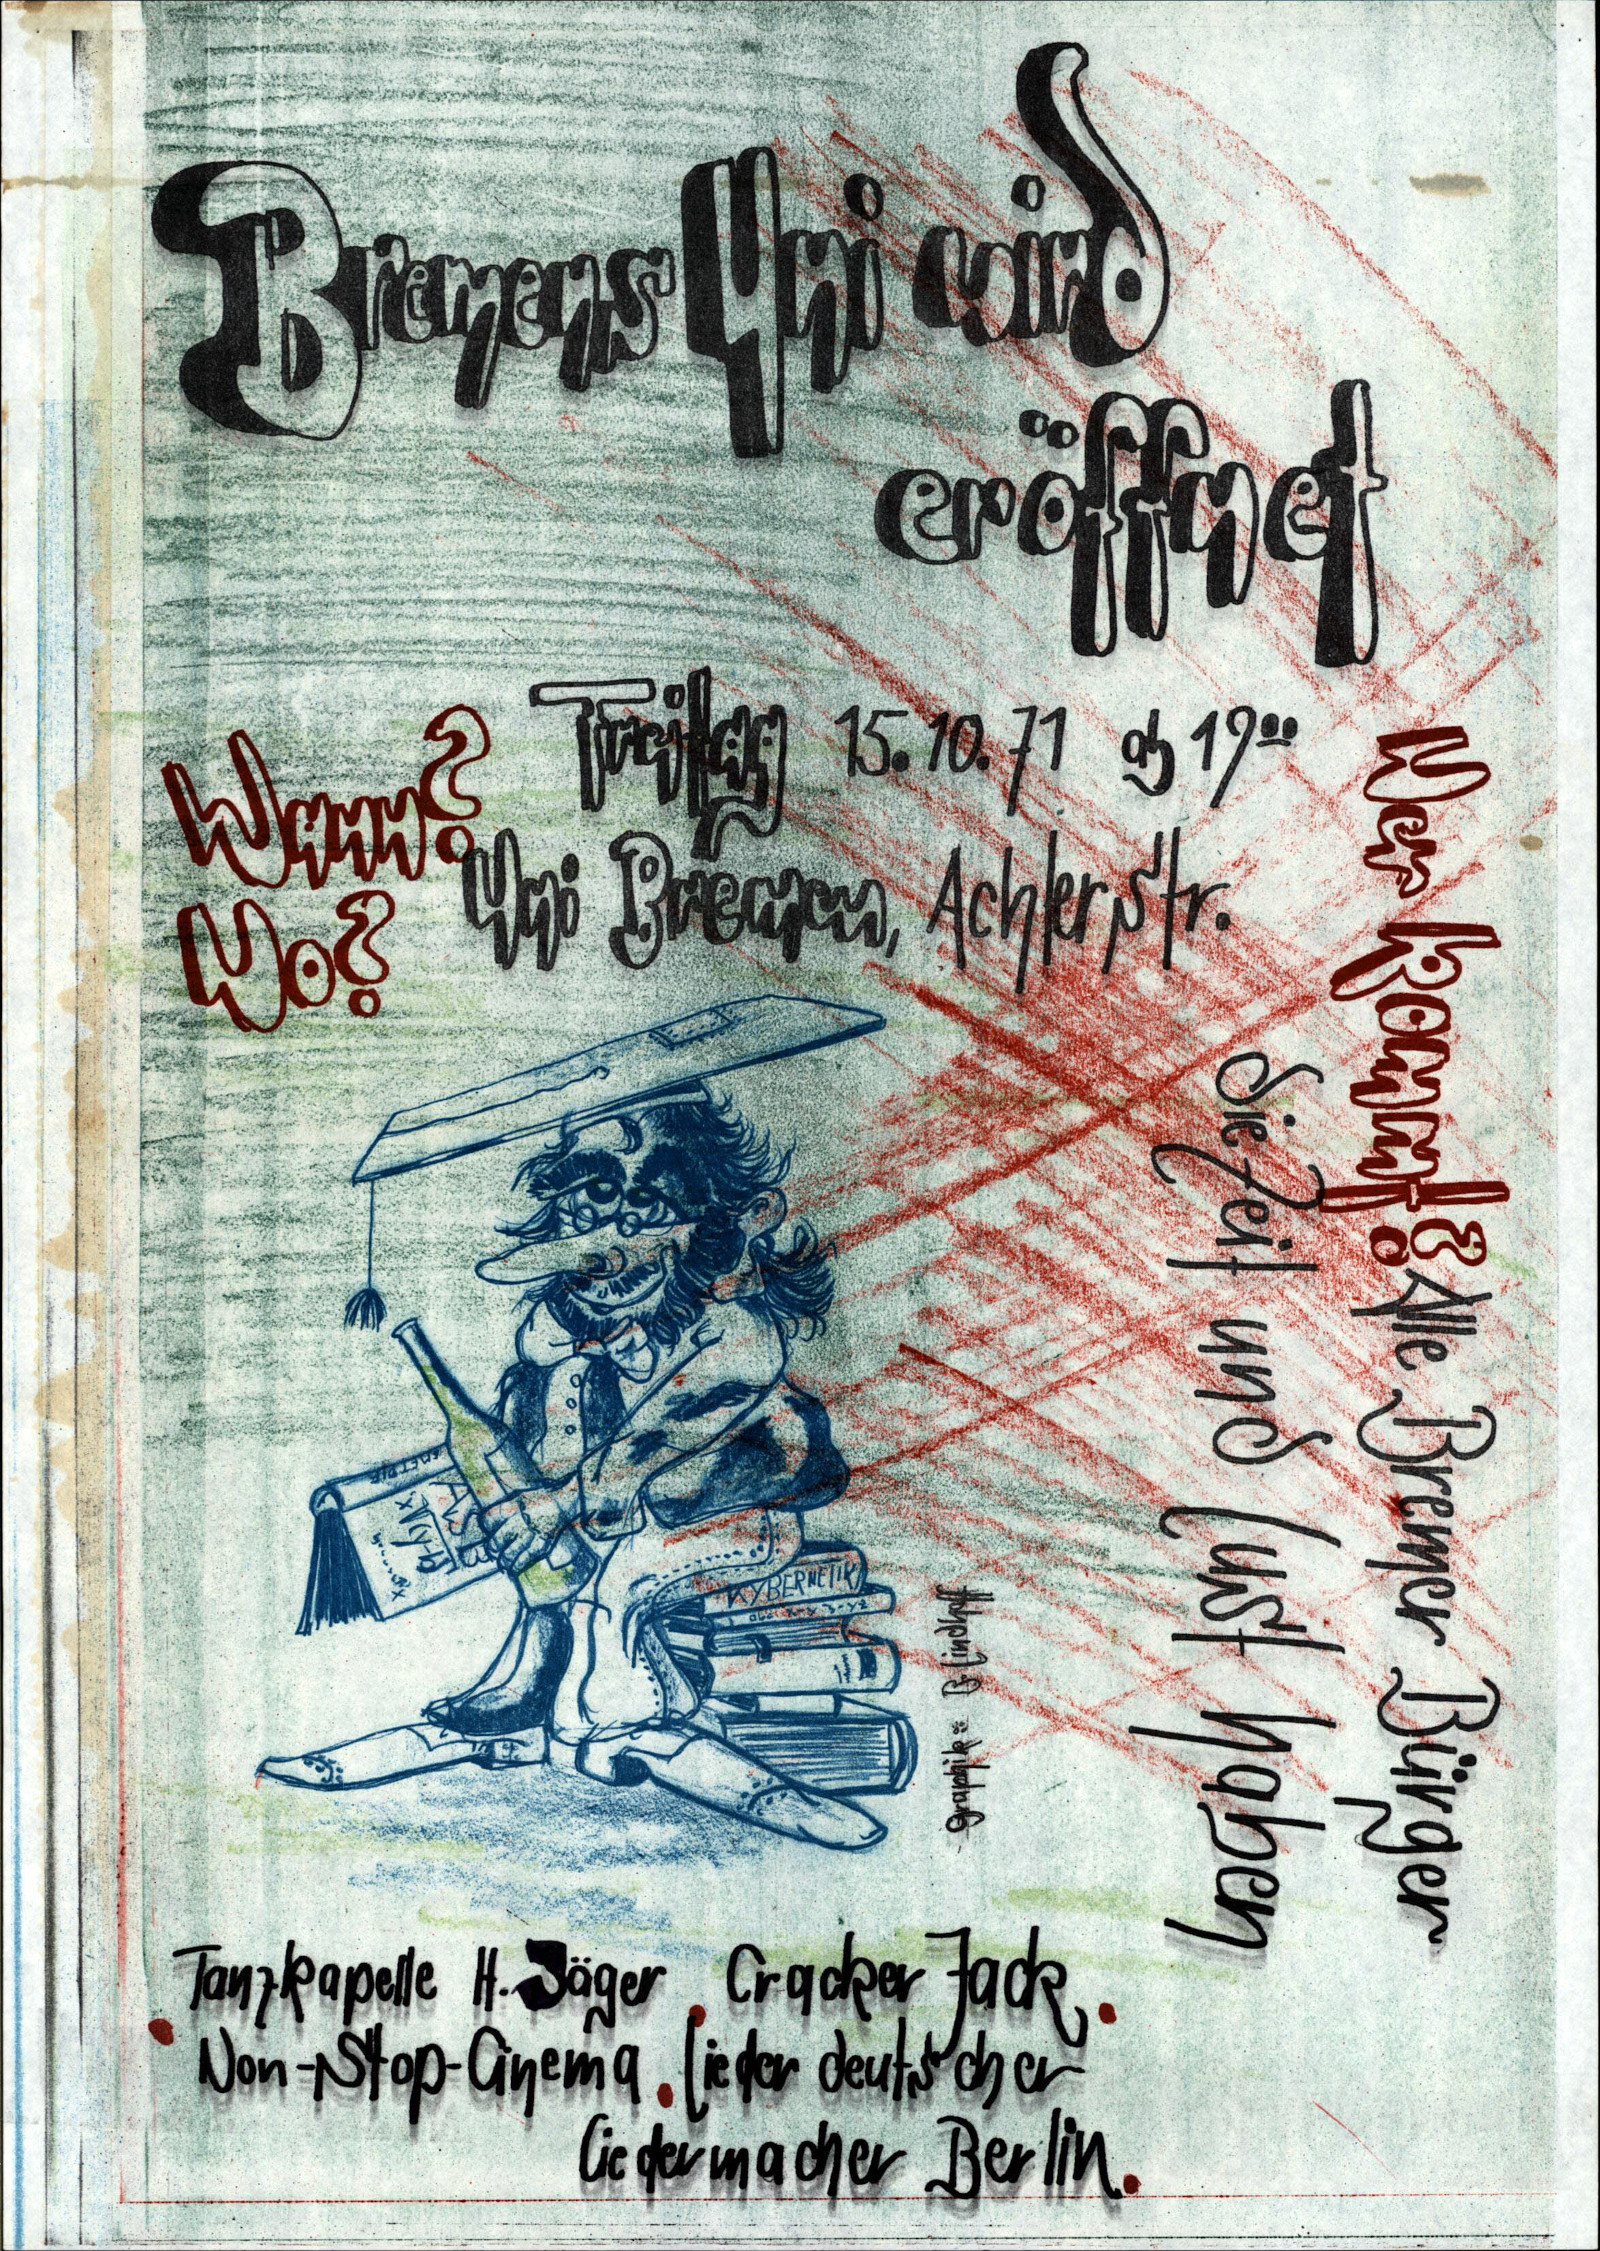 Bremens Uni wird
eröffnet
Wann?
Freitag 15.10.71 ab 19⁰⁰
Wo?
Uni Bremen, Achterstr.
Wer kommt? Alle Bremer Bürger
die Zeit und Lust haben
KYBERNETIK
graphik: B. Lindhoff
Tanzkapelle H. Jäger . Cracker Jack .
. Non-Stop-Cinema . Lieder deutscher
Liedermacher Berlin .